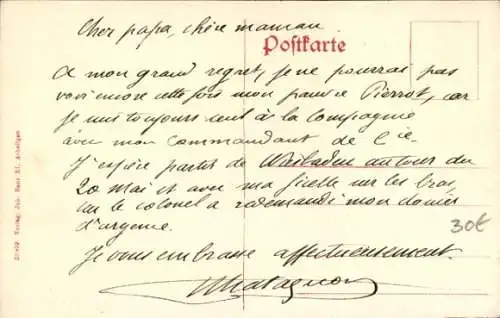 Cher papa, chère maman
Postkarte
A mon grand regret, je ne pourrai pas
voir encore cette fois mon pauvre Pierrot, car
je suis toujours seul à la Compagnie
avec mon Commandant de Cie.
J'espère partir de Wiesbaden autour du
20 Mai et avec ma ficelle sur les bras,
car le colonel a redemandé mon dossier
d'urgence.
Je vous embrasse affectueusement.
30€
Verlag Joh.